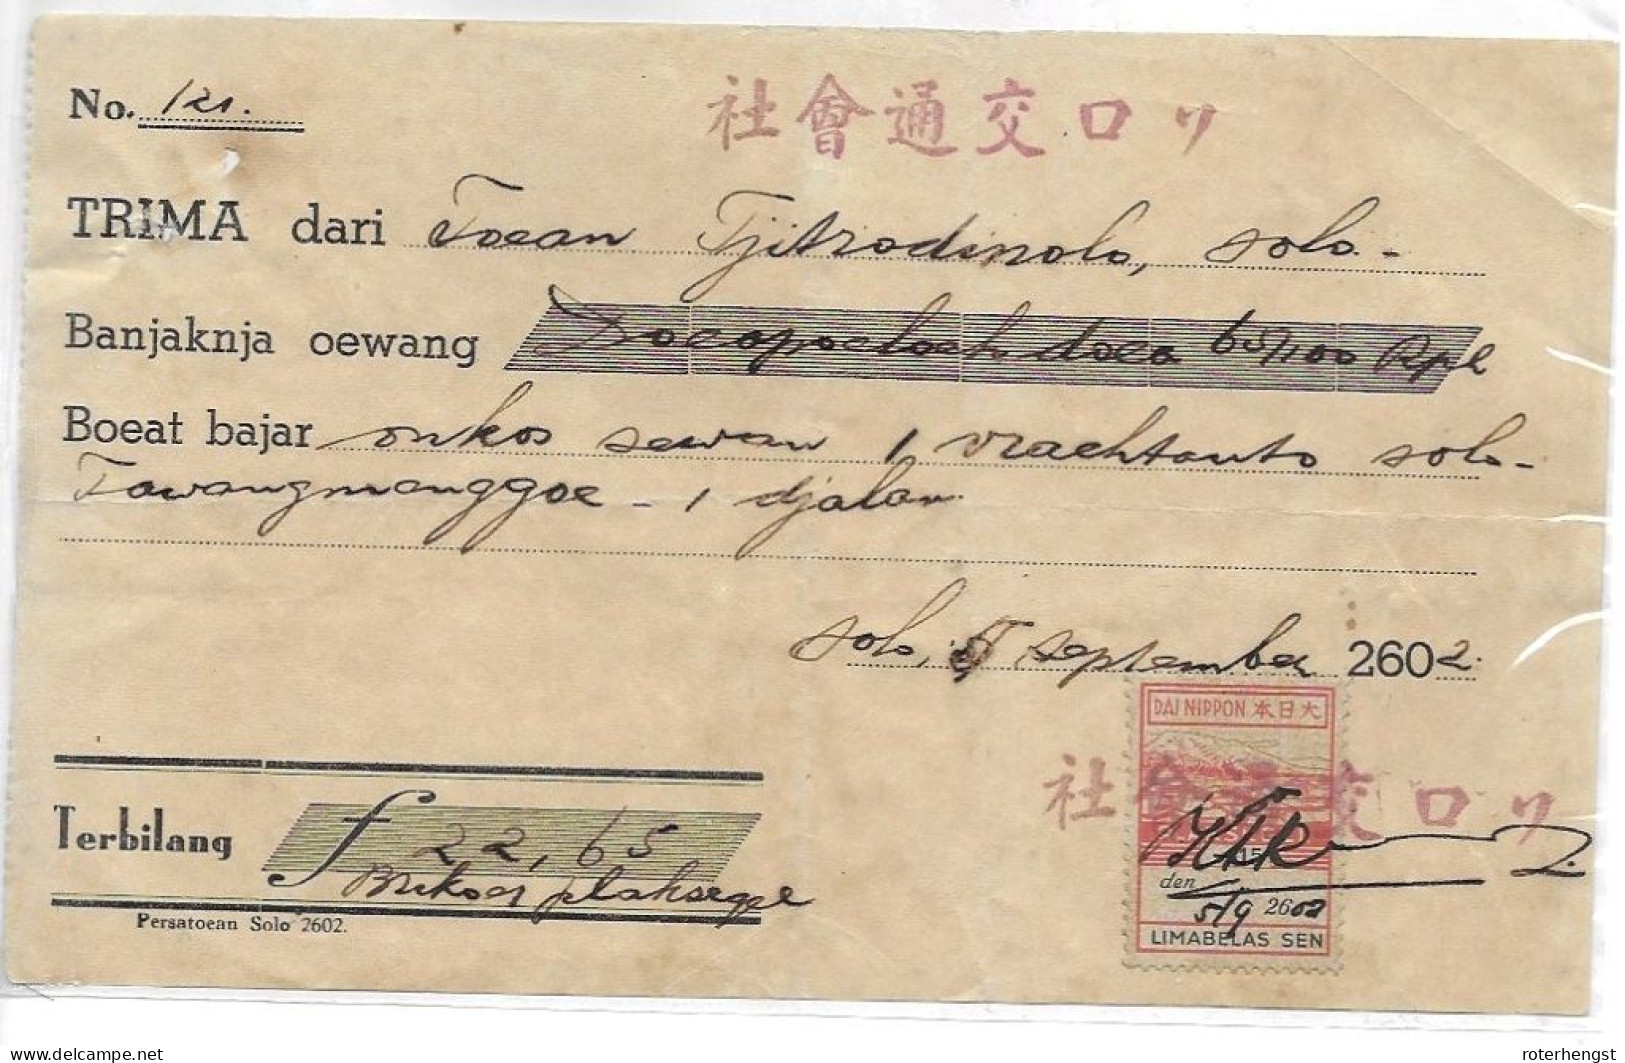 No. 121.
社會通交口ソ
TRIMA dari Toean Tjitrodinolo, Solo.-
Banjaknja oewang Doeapoeloeh doea 65/100 Rp
Boeat bajar onkos sewan 1 vrachtauto Solo-
Tawangmanggoe - 1 djalan
Solo, 5 September 2602.
DAI NIPPON 本日大
社會通交口ソ
15
den 5/9 2602
LIMABELAS SEN
Terbilang f 22,65
Persatoean Solo 2602.
delcampe.net
roterhengst